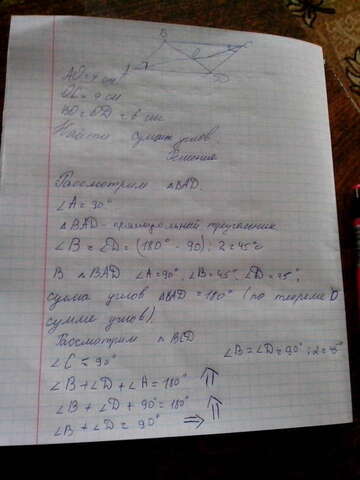 B
D
AO = 4 см
9 см
BO = OD = 6 см
Найти сумму углов.
Решение
Рассмотрим △BAD.
∠A = 90°
△BAD - прямоугольный треугольник
∠B = ∠D = (180° - 90) : 2 = 45°
В △BAD ∠A = 90°, ∠B = 45°, ∠D = 45°,
сумма углов △BAD = 180° (по теореме о
сумме углов).
Рассмотрим △BCD
∠C = 90°
∠B = ∠D = 90° : 2 = 45°
∠B + ∠D + ∠A = 180° ⇑
∠B + ∠D + 90° = 180° ⇑
∠B + ∠D = 90° ⇒